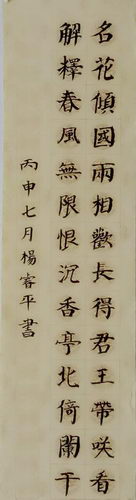 名花傾國兩相歡長得君王帶咲看
解釋春風無限恨沉香亭北倚闌干
丙申七月楊睿平書